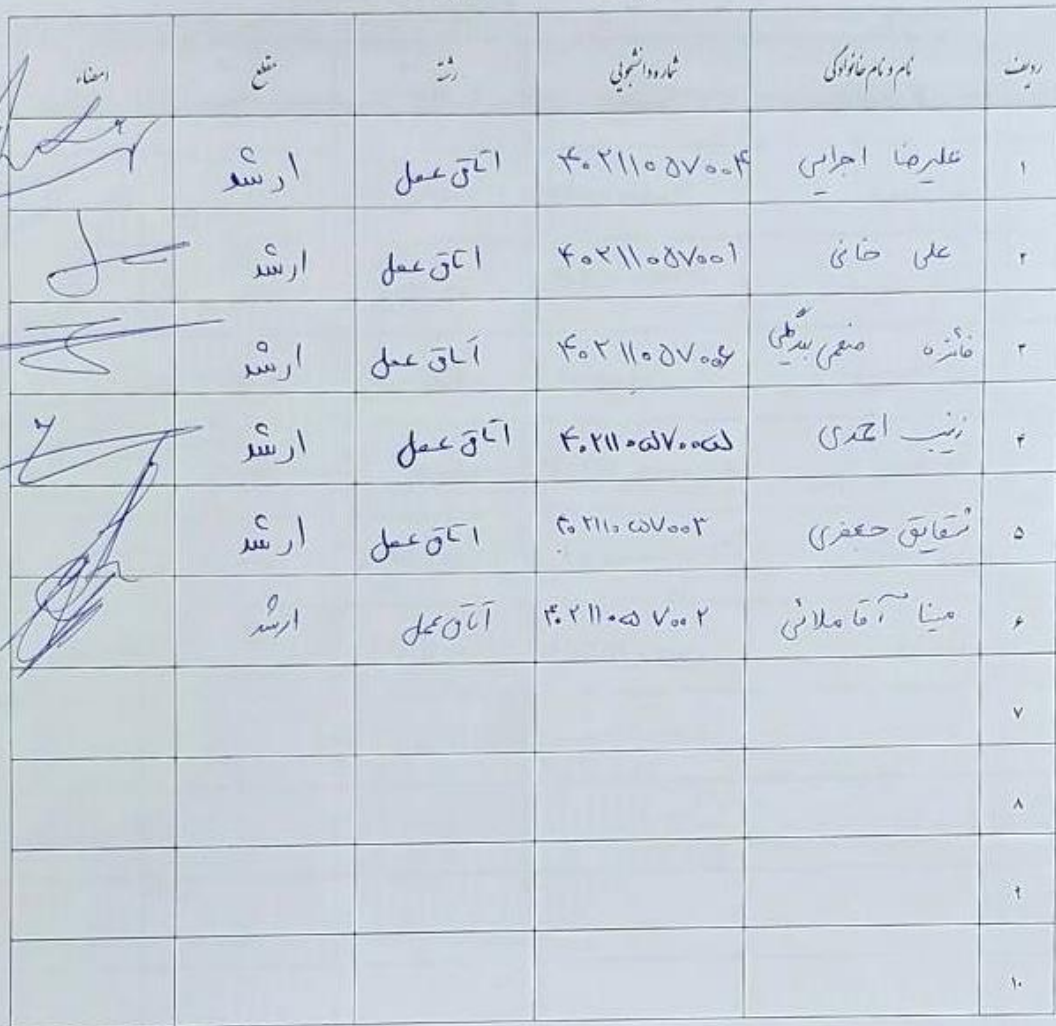 ردیف نام و نام خانوادگی شماره دانشجویی رشته مقطع امضاء
۱ علیرضا اجرایی ۴۰۲۱۱۰۵۷۰۰۴ اتاق عمل ارشد
۲ علی خانی ۴۰۲۱۱۰۵۷۰۰۱ اتاق عمل ارشد
۳ فائزه منعمی بیدگلی ۴۰۲۱۱۰۵۷۰۰۶ اتاق عمل ارشد
۴ زینب احمدی ۴۰۲۱۱۰۵۷۰۰۵ اتاق عمل ارشد
۵ شقایق جعفری ۴۰۲۱۱۰۵۷۰۰۳ اتاق عمل ارشد
۶ مینا آقاملائی ۴۰۲۱۱۰۵۷۰۰۲ اتاق عمل ارشد
۷
۸
۹
۱۰